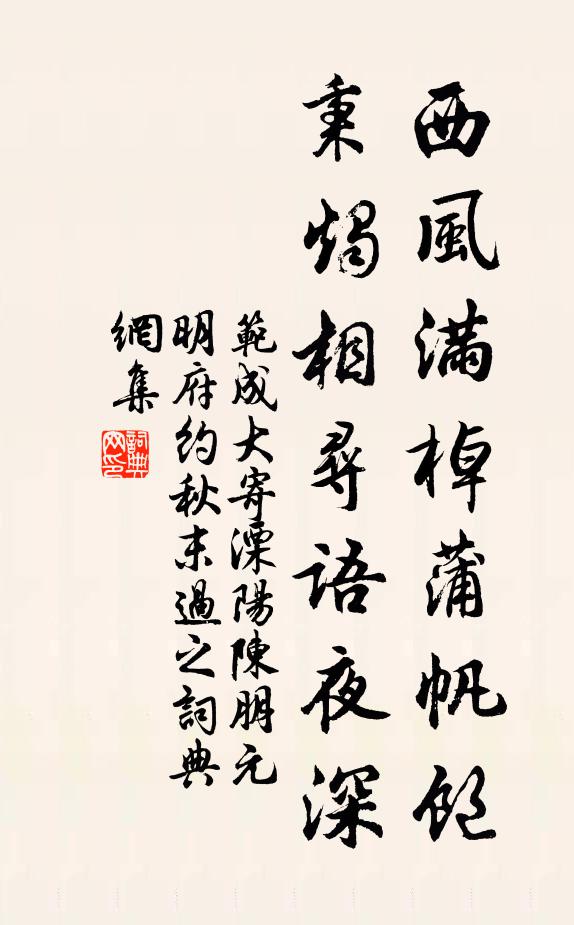 西風滿棹蒲帆飽
秉燭相尋語夜深
範成大寄溧陽陳朋元
明府約秋末過之詞典
網集
詞典
网印